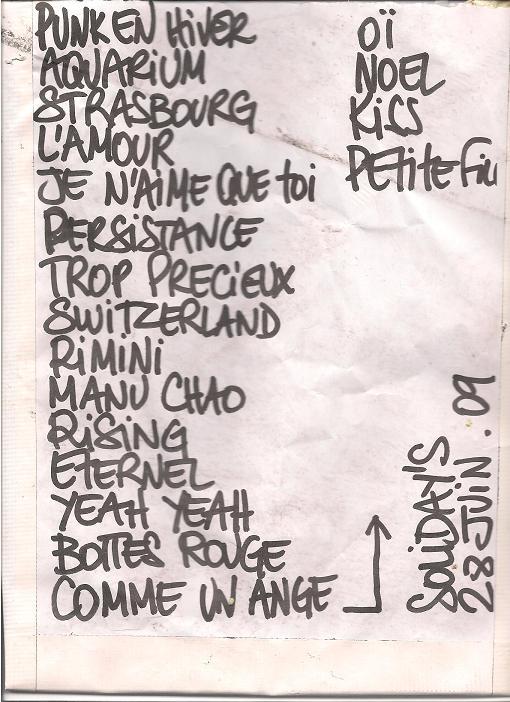 PUNK EN HiVER
AQUARiUM
STRASBOURG
L'AMOUR
JE N'AiME QUE toi
PERSiSTANCE
TROP PRECiEUX
SWiTZERLAND
RiMiNi
MANU CHAO
RiSiNG
ETERNEL
YEAH YEAH
BOTTES ROUGE
COMME UN ANGE
OÏ
NOEL
KiCS
PEtitE FiLL
SOLiDAYS
28 JUiN. 09